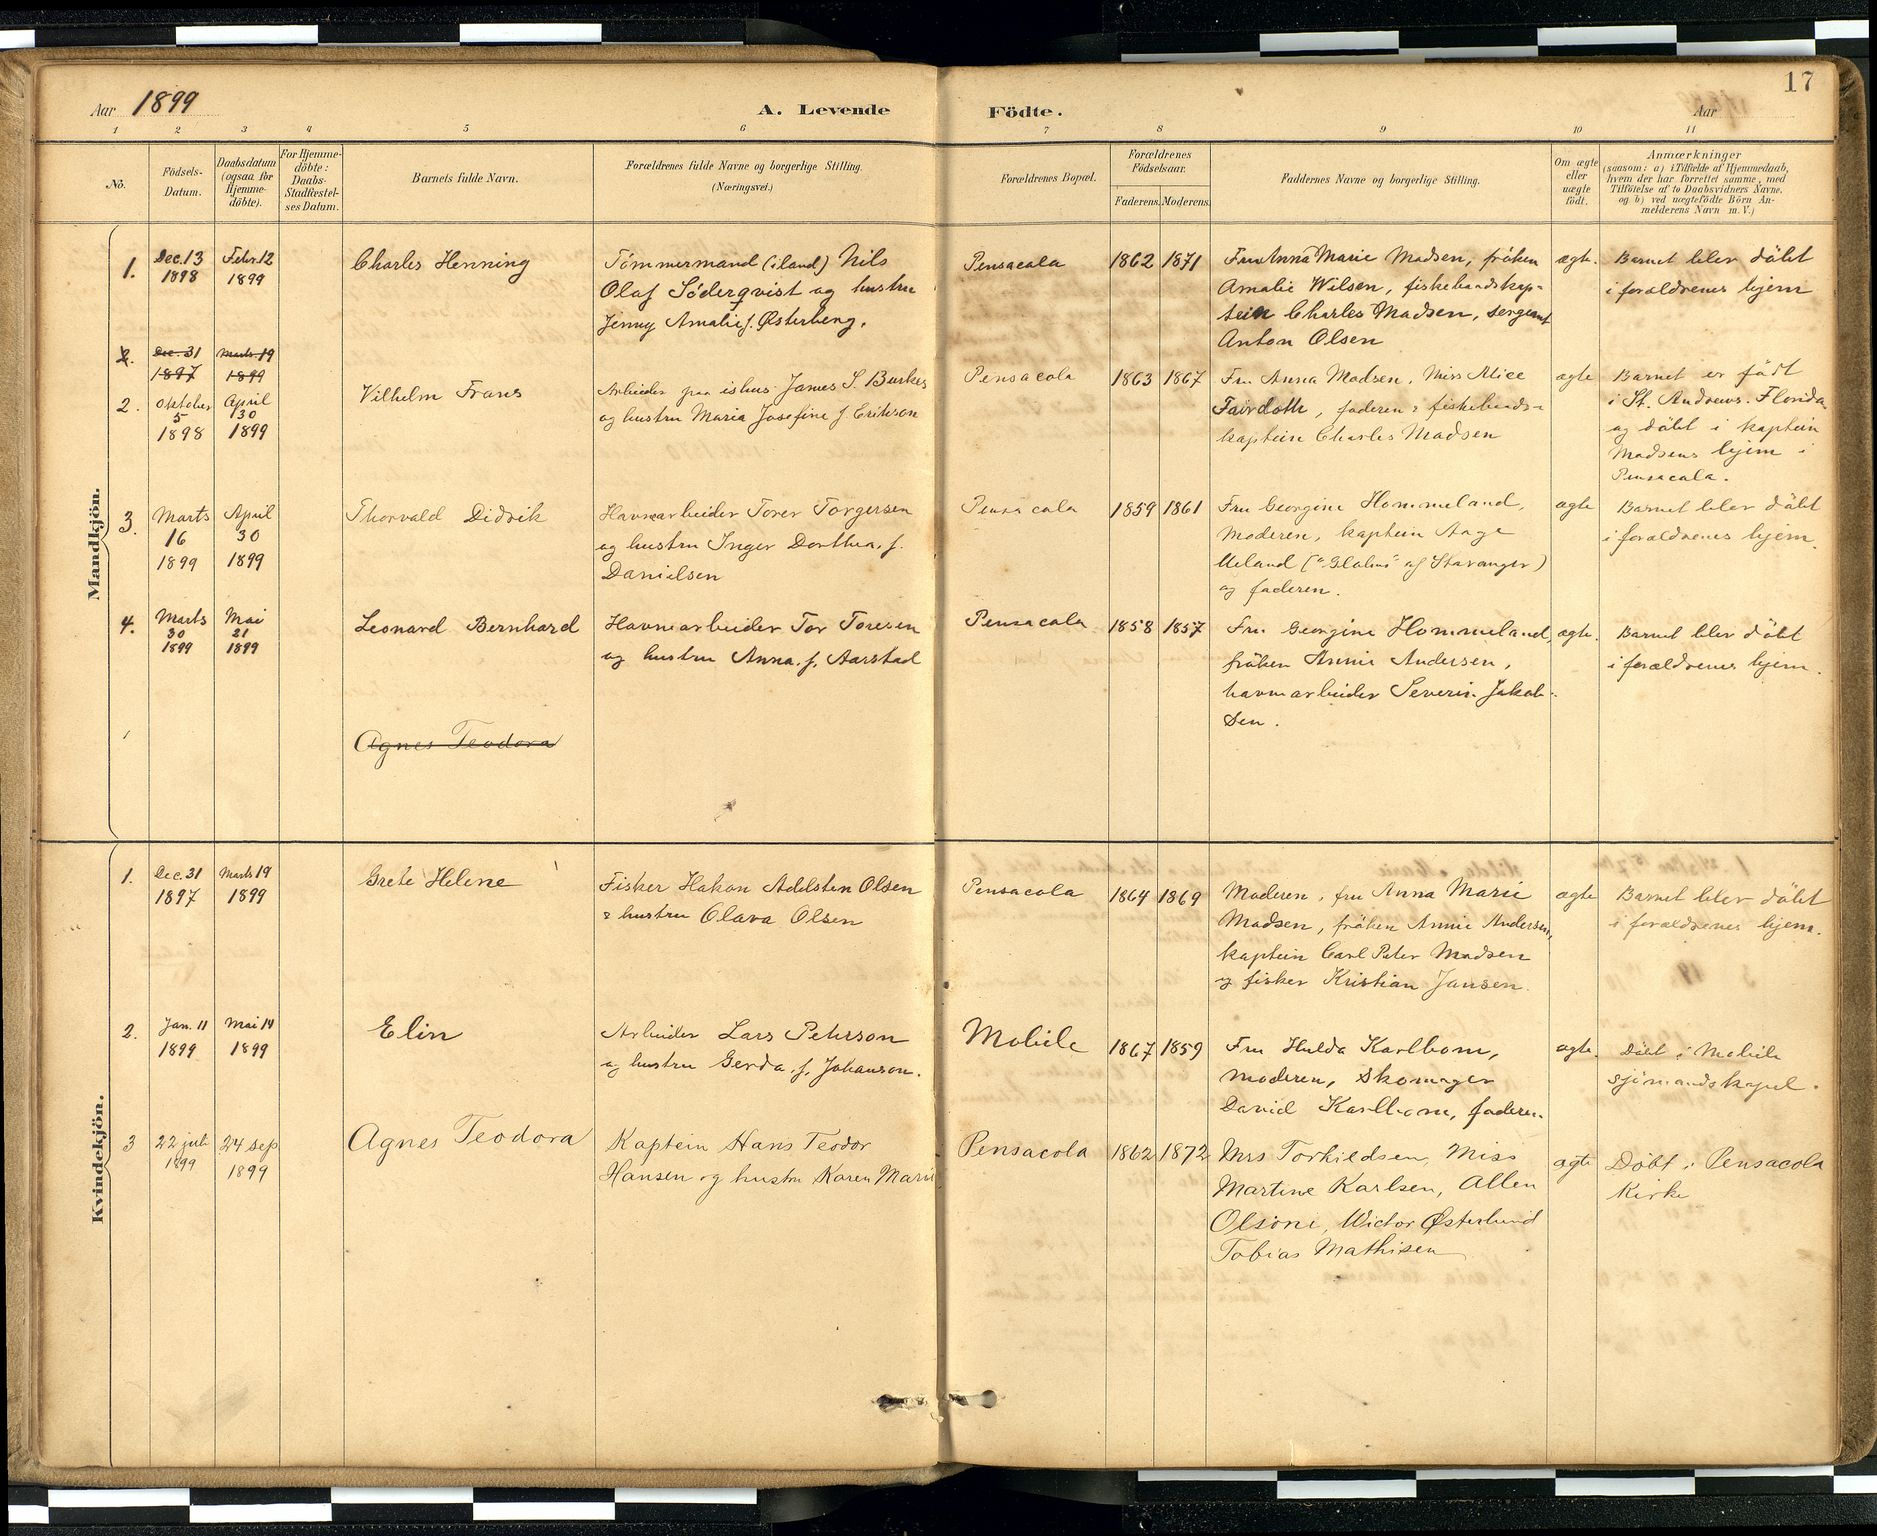 17
Aar 1899
A. Levende Födte.
Aar
1 2 3 4 5 6 7 8 9 10 11
No.
Födsels-
Datum.
Daabsdatum
(ogsaa for
Hjemme-
döbte).
For Hjemme-
döbte:
Daabs-
Stadfæstel-
ses Datum.
Barnets fulde Navn.
Forældrenes fulde Navne og borgerlige Stilling.
(Næringsvei.)
Forældrenes Bopæl.
Forældrenes
Födselsaar.
Faderens. Moderens.
Faddernes Navne og borgerlige Stilling.
Om ægte
eller
uægte
födt.
Anmærkninger
(saasom: a) i Tilfælde af Hjemmedaab,
hvem der har forrettet samme, med
Tilföielse af to Daabsvidners Navne.
og b) ved uægtefödte Börn An-
melderens Navn m. V.)
Mandkjön.
1.
Dec. 13
1898
Febr. 12
1899
Charles Henning
Tömmermand (iland) Nils
Olaf Söderqvist og hustru
Jenny Amalie f. Østerberg.
Pensacola
1862 1871
Fru Anna Marie Madsen, fröken
Amalie Wilsen, fiskebaadskap-
tein Charles Madsen, sergeant
Anton Olsen
ægte.
Barnet blev döbt
i forældrenes hjem
2.
Dec. 31
1897
Marts 19
1899
2.
Oktober
5
1898
April
30
1899
Vilhelm Frans
Arbeider paa ishus James S. Burkes
og hustru Maria Josefine f. Erikson
Pensacola
1863 1867
Fru Anna Madsen, Miss Alice
Fairdoth, faderen & fiskebaads-
kaptein Charles Madsen
ægte
Barnet er födt
i St. Andrews. Florida
og döbt i kaptein
Madsens hjem i
Pensacola.
3.
Marts
16
1899
April
30
1899
Thorvald Didrik
Havnearbeider Torer Torgersen
og hustru Inger Dorthea, f.
Danielsen
Pensacola
1859 1861
Fru Georgine Hommeland,
Moderen, kaptein Aage
Ueland ("Glalms" af Stavanger)
og faderen.
ægte
Barnet blev döbt
i forældrenes hjem.
4.
Marts
30
1899
Mai
21
1899
Leonard Bernhard
Havnearbeider Tor Toresen
og hustru Anna. f. Aarstad
Pensacola
1858 1857
Fru Georgine Hommeland,
fröken Annie Andersen,
havnearbeider Severin Jakob-
sen.
ægte.
Barnet blev döbt
i forældrenes hjem.
Agnes Teodora
Kvindekjön.
1.
Dec. 31
1897
Marts 19
1899
Grete Helene
Fisker Hakon Adelsten Olsen
& hustru Olava Olsen
Pensacola
1864 1869
Moderen, fru Anna Marie
Madsen, fröken Annie Andersen,
kaptein Carl Peter Madsen
og fisker Kristian Jansen.
ægte
Barnet blev döbt
i forældrenes hjem.
2.
Jan. 11
1899
Mai 14
1899
Elin
Arbeider Lars Peterson
og hustru Gerda. f. Johanson.
Mobile
1867 1859
Fru Hulda Karlbom,
moderen, Skomager
David Karlbom, faderen.
ægte.
Döbt i Mobile
sjömandskapel.
3
22 juli
1899
24 sep
1899
Agnes Teodora
Kaptein Hans Teodor
Hansen og hustru Karen Marie
Pensacola
1862 1872
Mrs Torkildsen, Miss
Martine Karlsen, Allen
Olsoni, Wictor Østerlund
Tobias Mathisen
ægte
Döbt i Pensacola
Kirke